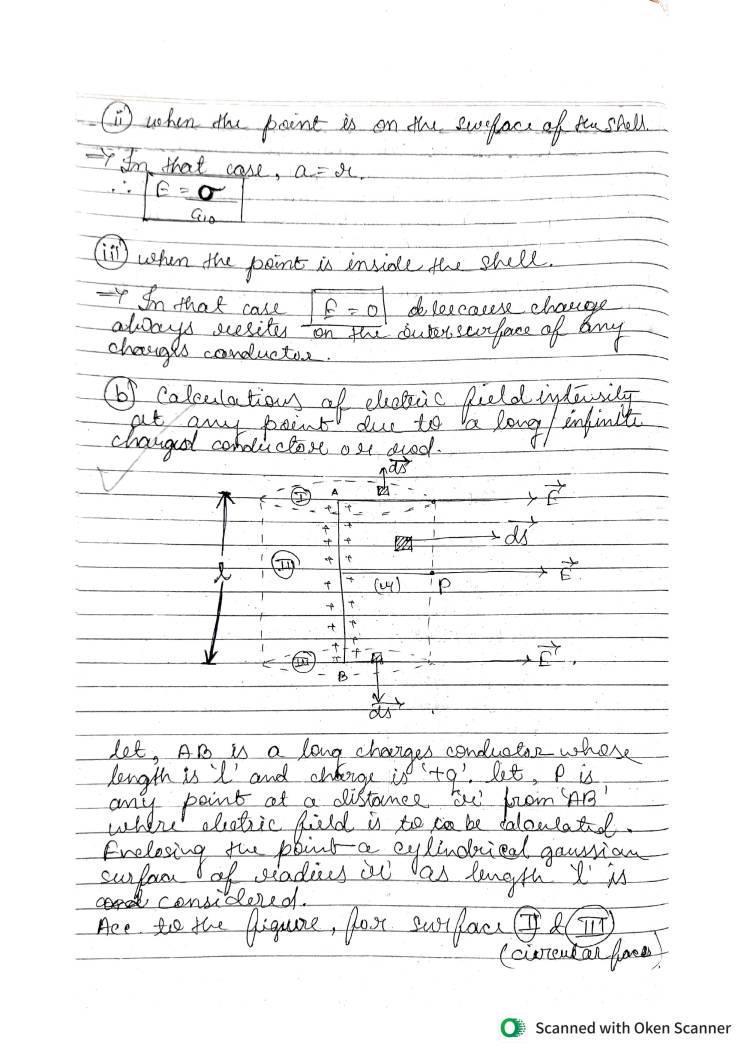 (ii) when the point is on the surface of the shell.
→ In that case, a = r.
∴ E = σ
G10
(iii) when the point is inside the shell.
→ In that case E = 0 because charge
always resites on the outer surface of any
charges conductor.
(b) Calculations of electric field intensity
at any point due to a long/infinite
charged conductor or rod.
ds
I A E
ds
l II (r) P E
III E
B
ds
let, AB is a long charges conductor whose
length is 'l' and charge is '+q'. let, P is
any point at a distance 'r' from 'AB'
where electric field is to be calculated.
Enclosing the point a cylindrical gaussian
surface of radius 'r' as length 'l' is
considered.
Acc. to the figure, for surface (I) & (III)
(circular faces)
Scanned with Oken Scanner